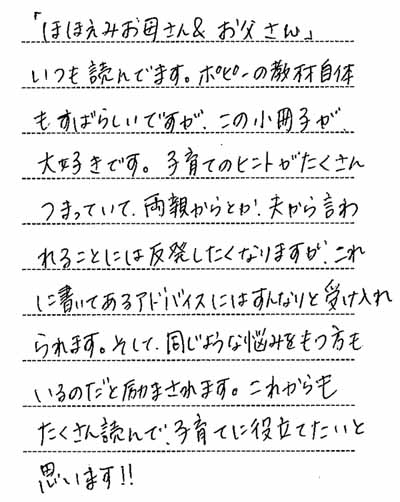 「ほほえみお母さん& お父さん」
いつも読んでます。ポピーの教材自体
も、すばらしいですが、この小冊子が、
大好きです。子育てのヒントがたくさん
つまっていて、両親からとか、夫から言わ
れることには反発したくなりますが、これ
に書いてあるアドバイスにはすんなりと受け入れ
られます。そして、同じような悩みをもつ方も
いるのだと励まされます。これからも
たくさん読んで、子育てに役立てたいと
思います!!